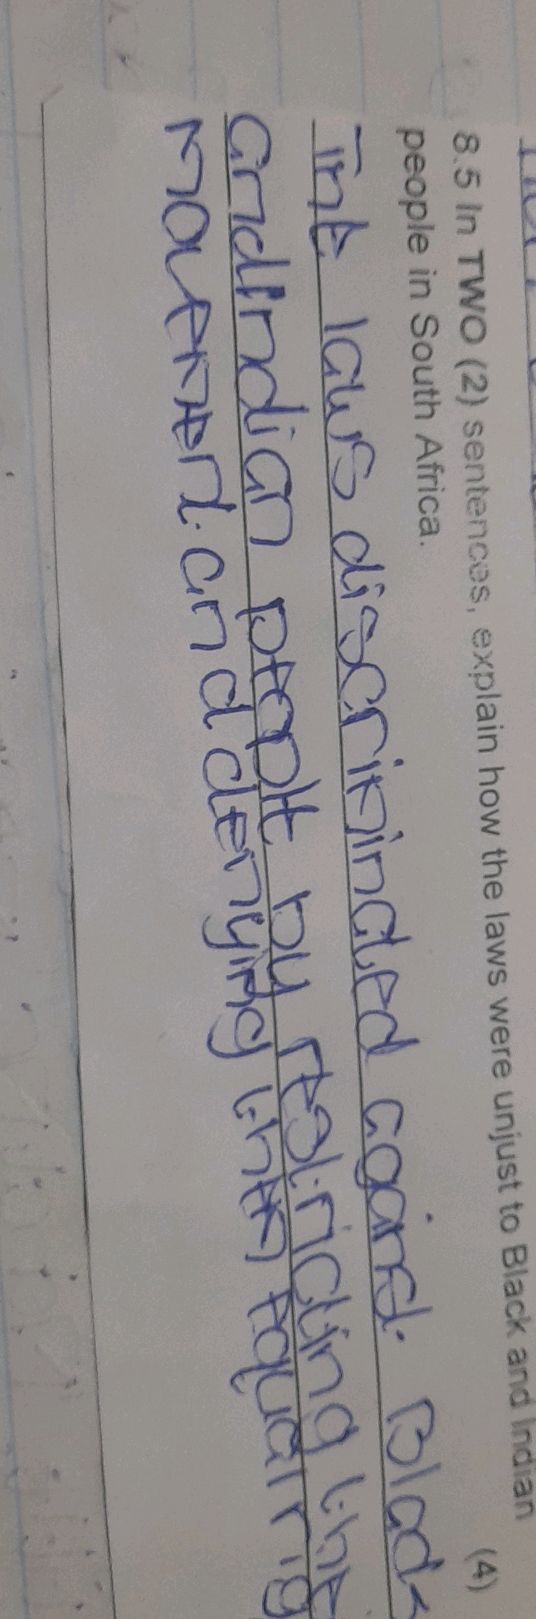 8.5 In TWO (2) sentences, explain how the laws were unjust to Black and Indian
people in South Africa. (4)
The laws discriminated against Black
and Indian people by restricting the
movement and denying them equal rig